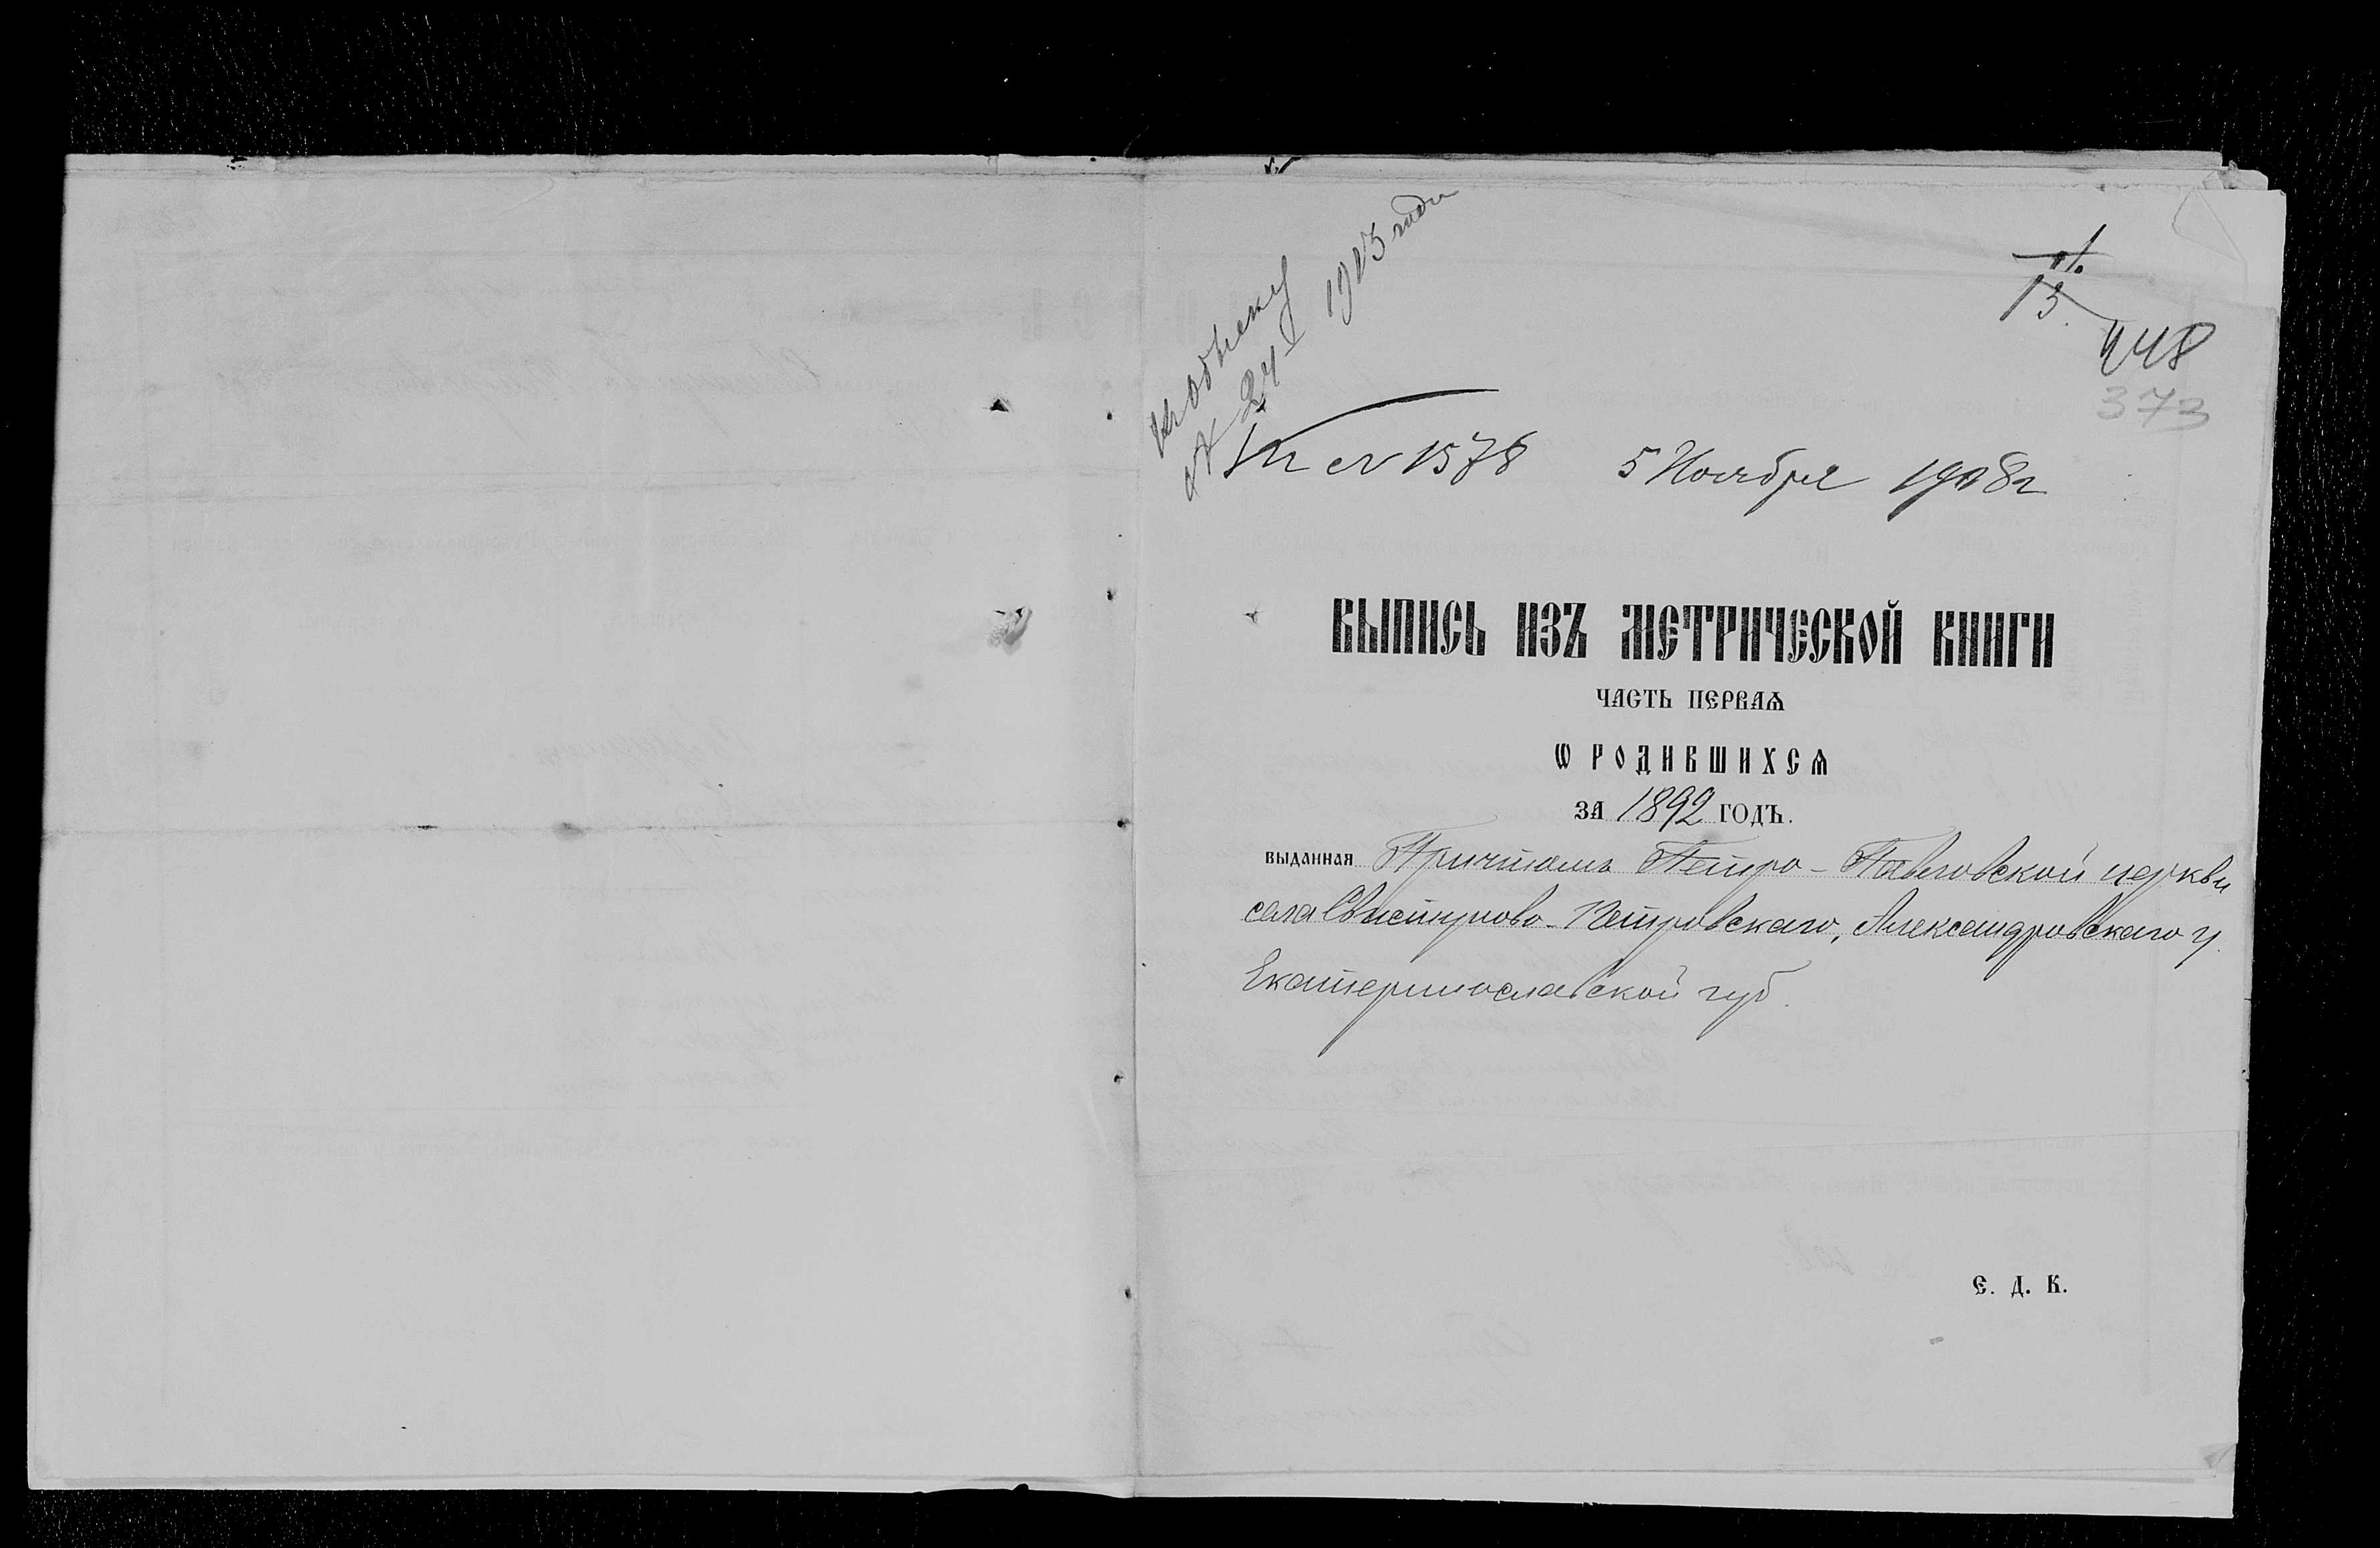 къ объекту
№ 24 1913 года
1/13.
448
373
Вх № 1578 5 Ноября 1908 г
ВЫПИСЬ ИЗЪ МЕТРИЧЕСКОЙ КНИГИ
ЧАСТЬ ПЕРВАѦ
Ѡ РОДИВШИХСѦ
ЗА 1892 ГОДЪ.
выданная Причтомъ Петро-Павловской церкви
села Свистуново-Петровскаго, Александровскаго у.
Екатеринославской губ.
Є. Д. К.